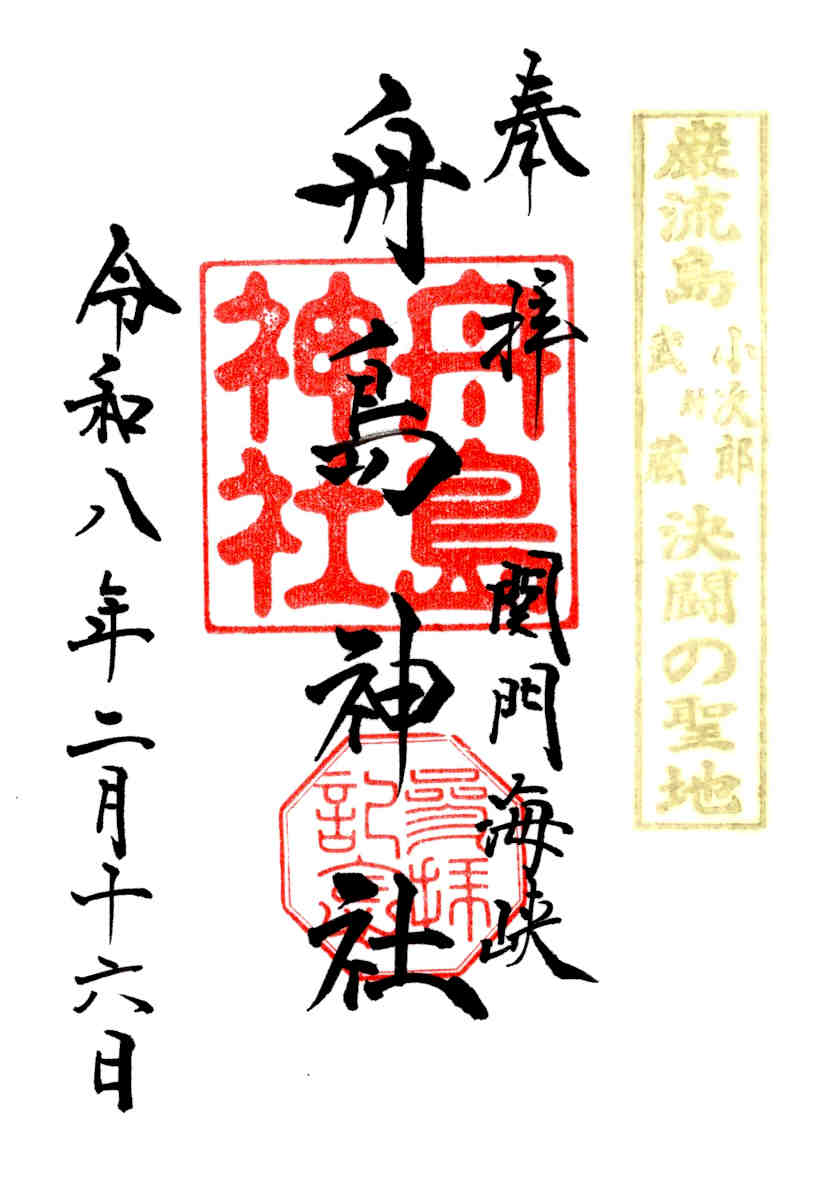 巌流島 小次郎 武蔵 決闘の聖地
奉拝 関門海峡
舟島神社
舟島神社
参拝記念
令和八年二月十六日